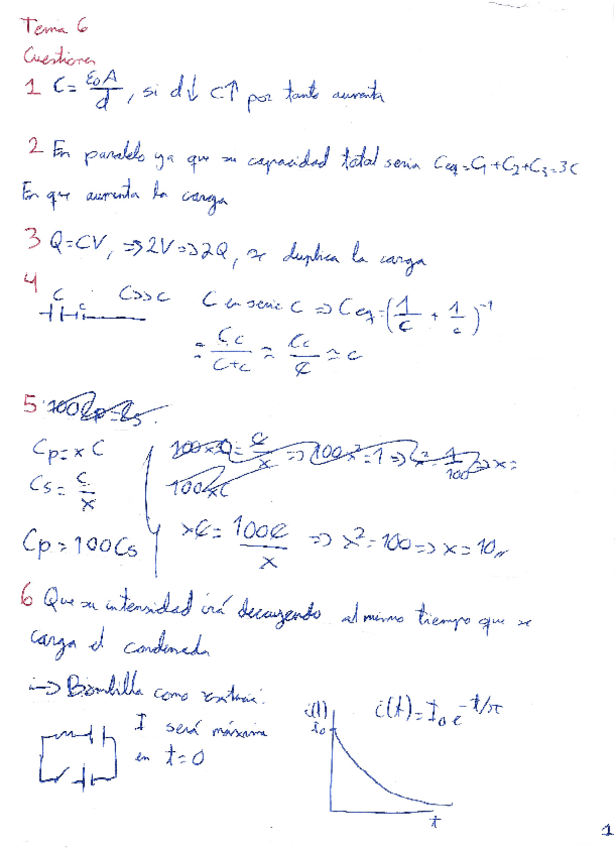 Tema 6
Cuestiones
1 C = ε₀A/d, si d↓ C↑ por tanto aumenta
2 En paralelo ya que su capacidad total seria Ceq = C₁ + C₂ + C₃ = 3C
En que aumenta la carga
3 Q = CV, => 2V => 2Q, se duplica la carga
4 C c C>>c C en serie c => Ceq = (1/C + 1/c)⁻¹
= Cc/(C+c) ≈ Cc/C ≈ c
5
Cp = xC
Cs = C/x
Cp = 100Cs
xC = 100C/x => x² = 100 => x = 10
6 Que su intensidad irá decayendo al mismo tiempo que se
carga el condensador
Bombilla como
I será máxima
en t = 0
i(t)
I₀
t
i(t) = I₀ e
1